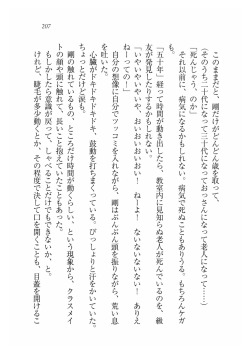 207
このままだと、剛だけがどんどん歳を取って、
（そのうち二十代になって三十代になっておっさんになって老人になって……）
（死んじゃう、のか）
それ以前に、病気になるかもしれない。病気で死ぬこともありうる。もちろんケガ
も。
「五十年」経って時間が動き出したら、教室内に見知らぬ老人が死んでいるのを、級
友が発見したりするかもしれない。
「いやいやいやいや、おいおいおいおい！　ねーよ！　ありえ
ねーっての！」
自分の想像に自分でツッコミを入れながら、剛はぶんぶん頭を振りながら、荒い息
を吐いた。
心臓がドキドキドキドキ、鼓動を打ちまくっている。びっしょりと汗をかいていた。
ちょっとだけ涙も。
剛の触れているもの、ところだけ時間が動くらしい、という現象から、クラスメイ
トの顔や頭に触れて、長いこと抱えていたこともあった。
もしかしたら意識が戻って、しゃべることだけでもできないか、と。
けれど、睫毛が多少動くとか、その程度で決して口を開くことも、目蓋を開けるこ